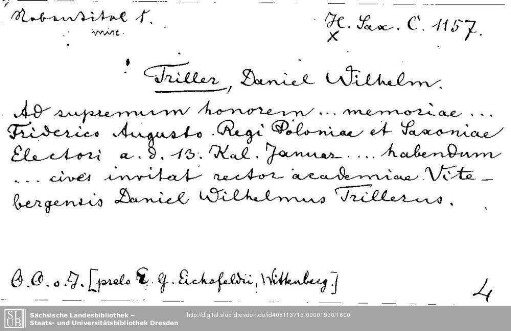 Nebentitel 1.
H. Sax. C. 1157.
misc.
x
Triller, Daniel Wilhelm.
Ad supremum honorem ... memoriae ...
Friderico Augusto Regi Poloniae et Saxoniae
Electori a. d. 13. Kal. Januar .... habendum
... cives invitat rector academiae Vite-
bergensis Daniel Wilhelmus Trillerus.
O. O. o. J. [prelo E. G. Eichsfeldii, Wittenberg.]
4
SLUB
Sächsische Landesbibliothek –
Staats- und Universitätsbibliothek Dresden